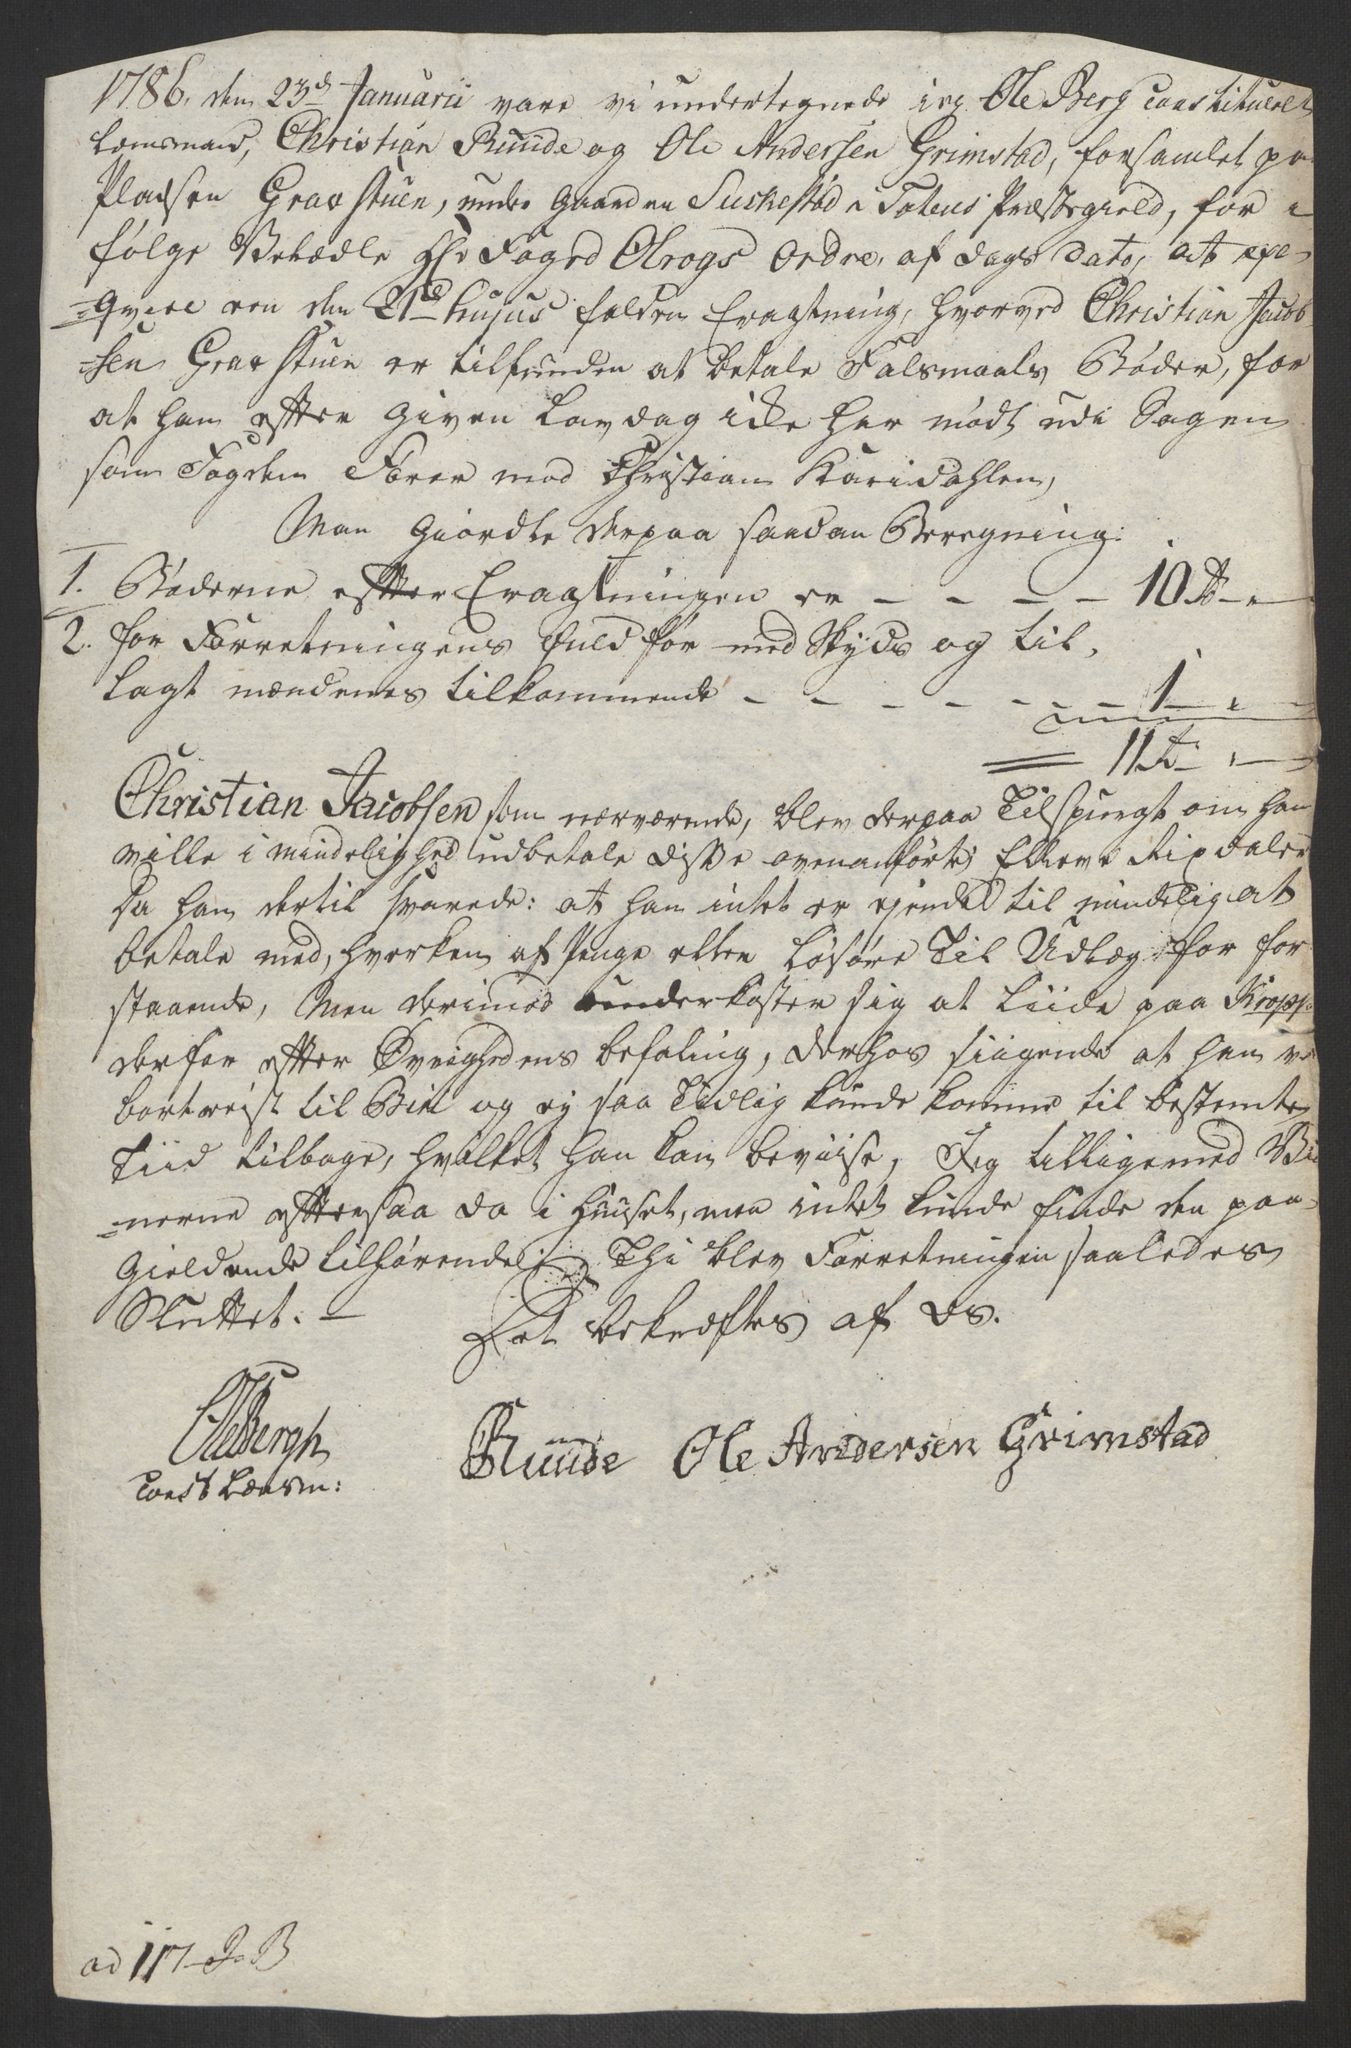 1786, den 23de Januarii vare vi undertegnede ieg Ole Berg constitueret
Lænsmand, Christian Ruude og Ole Andersen Grimstad, forsamlet paa
Pladsen Gravstuen, under Gaarden Suskestad i Totens Præstegield, for i
følge Velædle Hr. Foged Olrogs Ordre, af Dags Dato, at exe-
=qvere een den 21de hujus falden Eragtning, hvorved Christian Jacob-
=sen Gravstuen er tilfunden at betale Falsmaals Bøder, for
at han efter given Lavdag ikke har mødt udi Sagen
som Fogden fører mod Christian Karidahlen,
Man giordte derpaa saadan Beregning:
1. Bøderne efter Eragtningen er - - - - 10 Rd - "
2. for Forretningens fuldfør med Skyds og til-
lagt mændenes tilkommende - - - - - - 1 - "
11 Rd - "
Christian Jacobsen som nærværende, blev derpaa Tilspurgt om han
ville i mindelighed udbetale disse ovenanførte Elleve Rixdaler
da han dertil svarede: at han intet er ejende til mindelig at
betale med, hverken af Penge eller Løsøre Til Udlæg for for-
staaende, Men derimod underkaster sig at liide paa Kropp
derfor efter Øvrighedens befaling, derhos siigende at han var
bortreist til Biri og ej saa Tidlig kunde komme til bestemte
Tiid tilbage, hvilket han kan beviise, Jeg tilligemed
=nerne eftersaa da i Huuset, men intet kunde finde den paa-
Gieldende tilhørende. Thi blev Forretningen saaledes
Sluttet. -
Det bekræftes af os.
Ole Bergh
Const Lænsm:
Ruude Ole Andersen Grimstad
ad 117 J. B